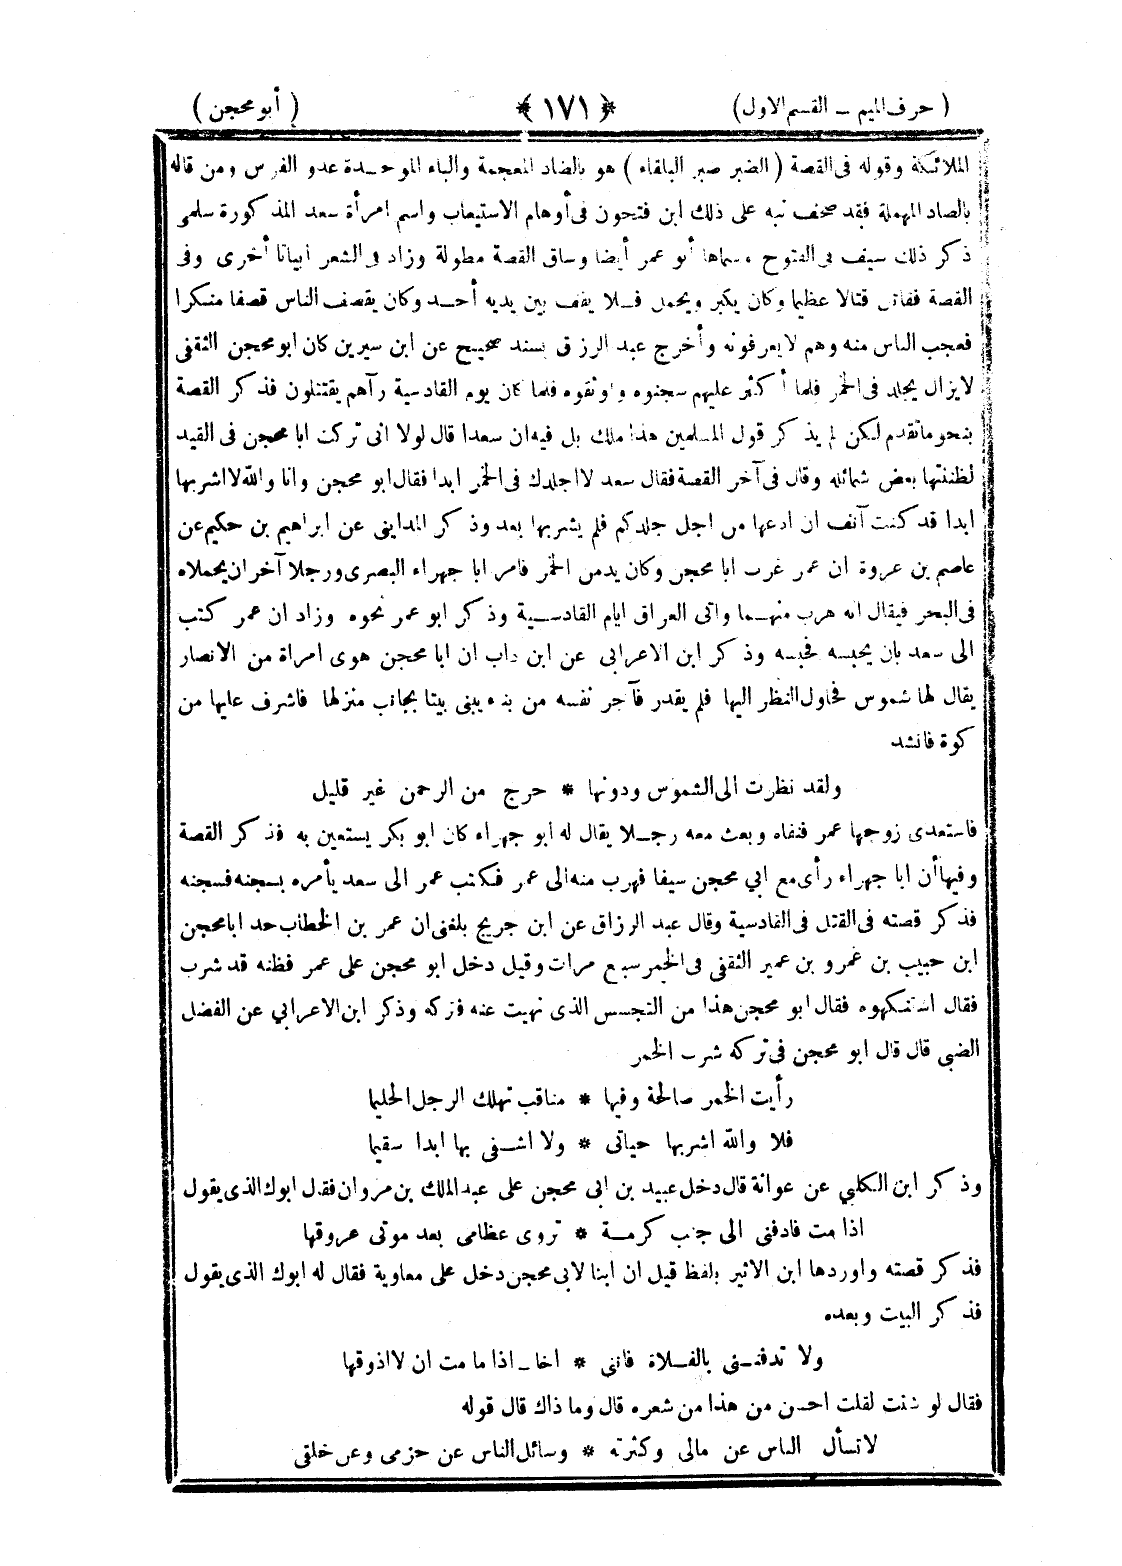 ( حرف الميم – القسم الاول ) ﴿ ١٧١ ﴾ ( أبو محجن )
الملائكة وقوله فى القصة ( الضبر صبر البلقاء ) هو بالضاد المعجمة والباء الموحدة عدو الفرس ومن قاله
بالصاد المهملة فقد صحف نبه على ذلك ابن فتحون فى أوهام الاستيعاب واسم امرأة سعد المذكورة سلمى
ذكر ذلك سيف فى الفتوح وسماها أبو عمر أيضا وساق القصة مطولة وزاد فى الشعر ابياتا أخرى وفى
القصة فقاتل قتالا عظيما وكان يكبر ويحمل فلا يقف بين يديه أحد وكان يقصف الناس قصفا منكرا
فعجب الناس منه وهم لا يعرفونه وأخرج عبد الرزاق بسند صحيح عن ابن سيرين كان ابو محجن الثقفى
لا يزال يجلد فى الخمر فلما أكثر عليهم سجنوه واوثقوه فلما كان يوم القادسية رآهم يقتتلون فذكر القصة
بنحو ماتقدم لكن لم يذكر قول المسلمين هذا ملك بل فيه ان سعدا قال لولا انى تركت ابا محجن فى القيد
لظننتها بعض شمائله وقال فى آخر القصة فقال سعد لا اجلدك فى الخمر ابدا فقال ابو محجن وانا والله لا اشربها
ابدا قد كنت آنف ان ادعها من اجل جلدكم فلم يشربها بعد وذكر المداينى عن ابراهيم بن حكيم عن
عاصم بن عروة ان عمر غرب ابا محجن وكان يدمن الخمر فامر ابا جهراء البصرى ورجلا آخر ان يحملاه
فى البحر فيقال انه هرب منهما واتى العراق ايام القادسية وذكر ابو عمر نحوه وزاد ان عمر كتب
الى سعد بان يحبسه فحبسه وذكر ابن الاعرابى عن ابن داب ان ابا محجن هوى امراة من الانصار
يقال لها شموس فحاول النظر اليها فلم يقدر فآجر نفسه من بناء يبنى بيتا بجانب منزلها فاشرف عليها من
كوة فانشد
ولقد نظرت الى الشموس ودونها * حرج من الرحمن غير قليل
فاستعدى زوجها عمر فنفاه وبعث معه رجلا يقال له أبو جهراء كان ابو بكر يستعين به فذكر القصة
وفيها أن ابا جهراء رأى مع ابي محجن سيفا فهرب منه الى عمر فكتب عمر الى سعد يأمره بسجنه فسجنه
فذكر قصته فى القتل فى القادسية وقال عبد الرزاق عن ابن جريج بلغنى ان عمر بن الخطاب حد ابا محجن
ابن حبيب بن عمرو بن عمير الثقفى فى الخمر سبع مرات وقيل دخل ابو محجن على عمر فظنه قد شرب
فقال استنكهوه فقال ابو محجن هذا من التجسس الذى نهيت عنه فتركه وذكر ابن الاعرابي عن الفضل
الضبى قال قال ابو محجن فى تركه شرب الخمر
رأيت الخمر صالحة وفيها * مناقب تهلك الرجل الحليما
فلا والله اشربها حياتى * ولا اشفى بها ابدا سقيما
وذكر ابن الكلبي عن عوانة قال دخل عبيد بن ابى محجن على عبد الملك بن مروان فقال ابوك الذى يقول
اذا مت فادفنى الى جنب كرمة * تروى عظامى بعد موتى عروقها
فذكر قصته واوردها ابن الاثير بلفظ قيل ان ابنا لابى محجن دخل على معاوية فقال له ابوك الذى يقول
فذكر البيت وبعده
ولا تدفننى بالفلاة فاننى * اخاف اذا ما مت ان لا اذوقها
فقال لو شئت لقلت احسن من هذا من شعره قال وما ذاك قال قوله
لا تسأل الناس عن مالى وكثرته * وسائل الناس عن حزمى وعن خلقى